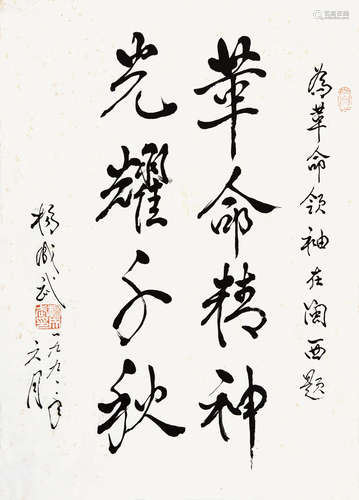 為革命領袖在閩西題
革命精神
光耀千秋
楊成武
一九九一年
六月